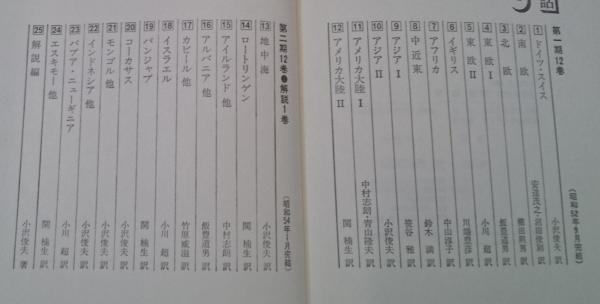 話
第一期12巻
(昭和52年9月完結)
1 ドイツ・スイス 小沢俊夫 訳
2 南欧
3 北欧
4 東欧 Ⅰ 飯豊道男 訳
5 東欧 Ⅱ 小川 超 訳
6 イギリス
7 アフリカ 中山淳子 訳
8 中近東 鈴木 満 訳
9 アジア Ⅰ 笹谷 雅 訳
10 アジア Ⅱ 小沢俊夫 訳
11 アメリカ大陸 Ⅰ 中村志朗・青山隆夫 訳
12 アメリカ大陸 Ⅱ 関 楠生 訳
第二期12巻・解説1巻
(昭和54年1月完結)
13 地中海 小沢俊夫 訳
14 ロートリンゲン 関 楠生 訳
15 アイルランド 他 中村志朗 訳
16 アルバニア 他 飯豊道男 訳
17 カビール 他 竹原威滋 訳
18 イスラエル 小川 超 訳
19 パンジャブ 関 楠生 訳
20 コーカサス 小沢俊夫 訳
21 モンゴル 他 小沢俊夫 訳
22 インドネシア 他 小沢俊夫 訳
23 パプア・ニューギニア 小川 超 訳
24 エスキモー 他 関 楠生 訳
25 解説編 小沢俊夫 著